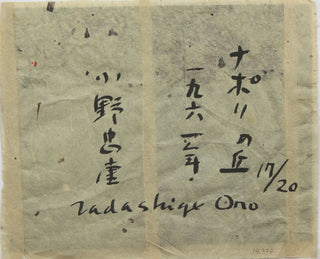 ナポリの丘
17/20
一九六三年.
小野忠重
Tadashige Ono